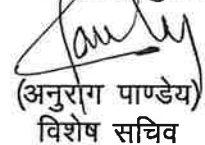 (अनुराग पाण्डेय)
विशेष सचिव